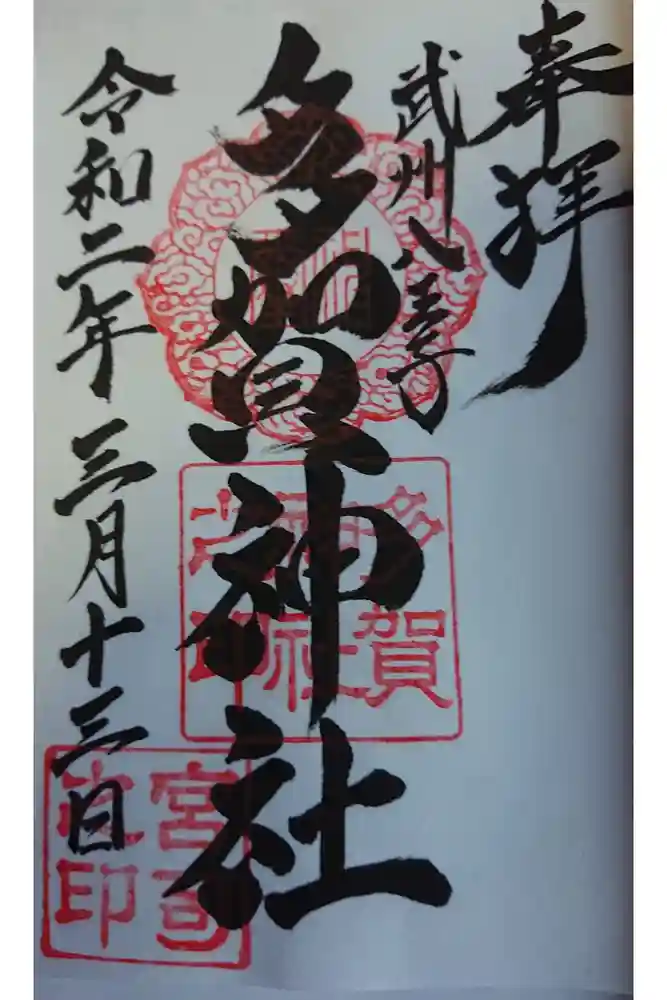 奉拝
武州八王子
多賀神社
令和二年三月十三日
多賀
神社
之印
宮司
之印